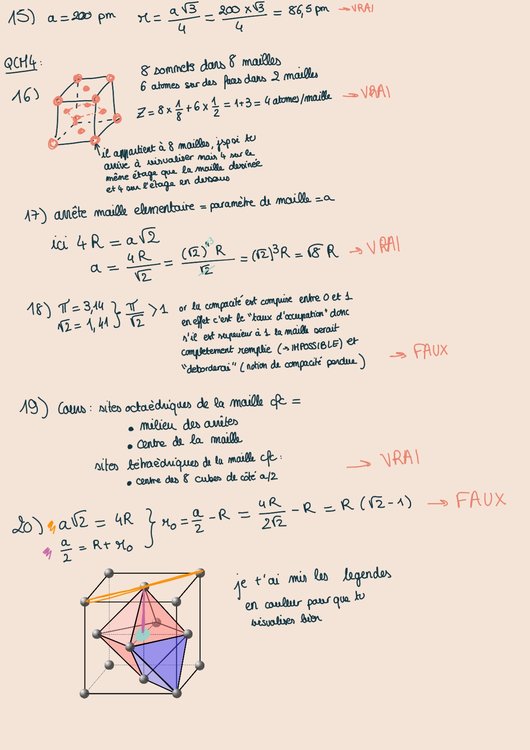 15) a = 200 pm r = a√3/4 = 200×√3/4 = 86,5 pm → VRAI
QCM4:
16)
8 sommets dans 8 mailles
6 atomes sur des faces dans 2 mailles
Z = 8 × 1/8 + 6 × 1/2 = 1+3 = 4 atomes/maille → VRAI
il appartient à 8 mailles, jspoi tu
arrive à visualiser mais 4 sur le
même étage que la maille dessinée
et 4 sur l'étage en dessous
17) arrête maille elementaire = paramètre de maille = a
ici 4R = a√2
a = 4R/√2 = (√2)⁴ R/√2 = (√2)³R = √8 R → VRAI
18) π = 3,14
√2 = 1,41 } π/√2 > 1
or la compacité est comprise entre 0 et 1
en effet c'est le "taux d'occupation" donc
s'il est supérieur à 1 la maille serait
completement remplie (→ IMPOSSIBLE) et
"deborderai" (notion de compacité perdue)
→ FAUX
19) Cours : sites octaèdriques de la maille cfc =
• milieu des arrêtes
• centre de la maille
sites tétraèdriques de la maille cfc :
• centre des 8 cubes de côté a/2
→ VRAI
20) a√2 = 4R
a/2 = R + r₀ } r₀ = a/2 - R = 4R/2√2 - R = R (√2 - 1) → FAUX
je t'ai mis les legendes
en couleur pour que tu
visualises bien